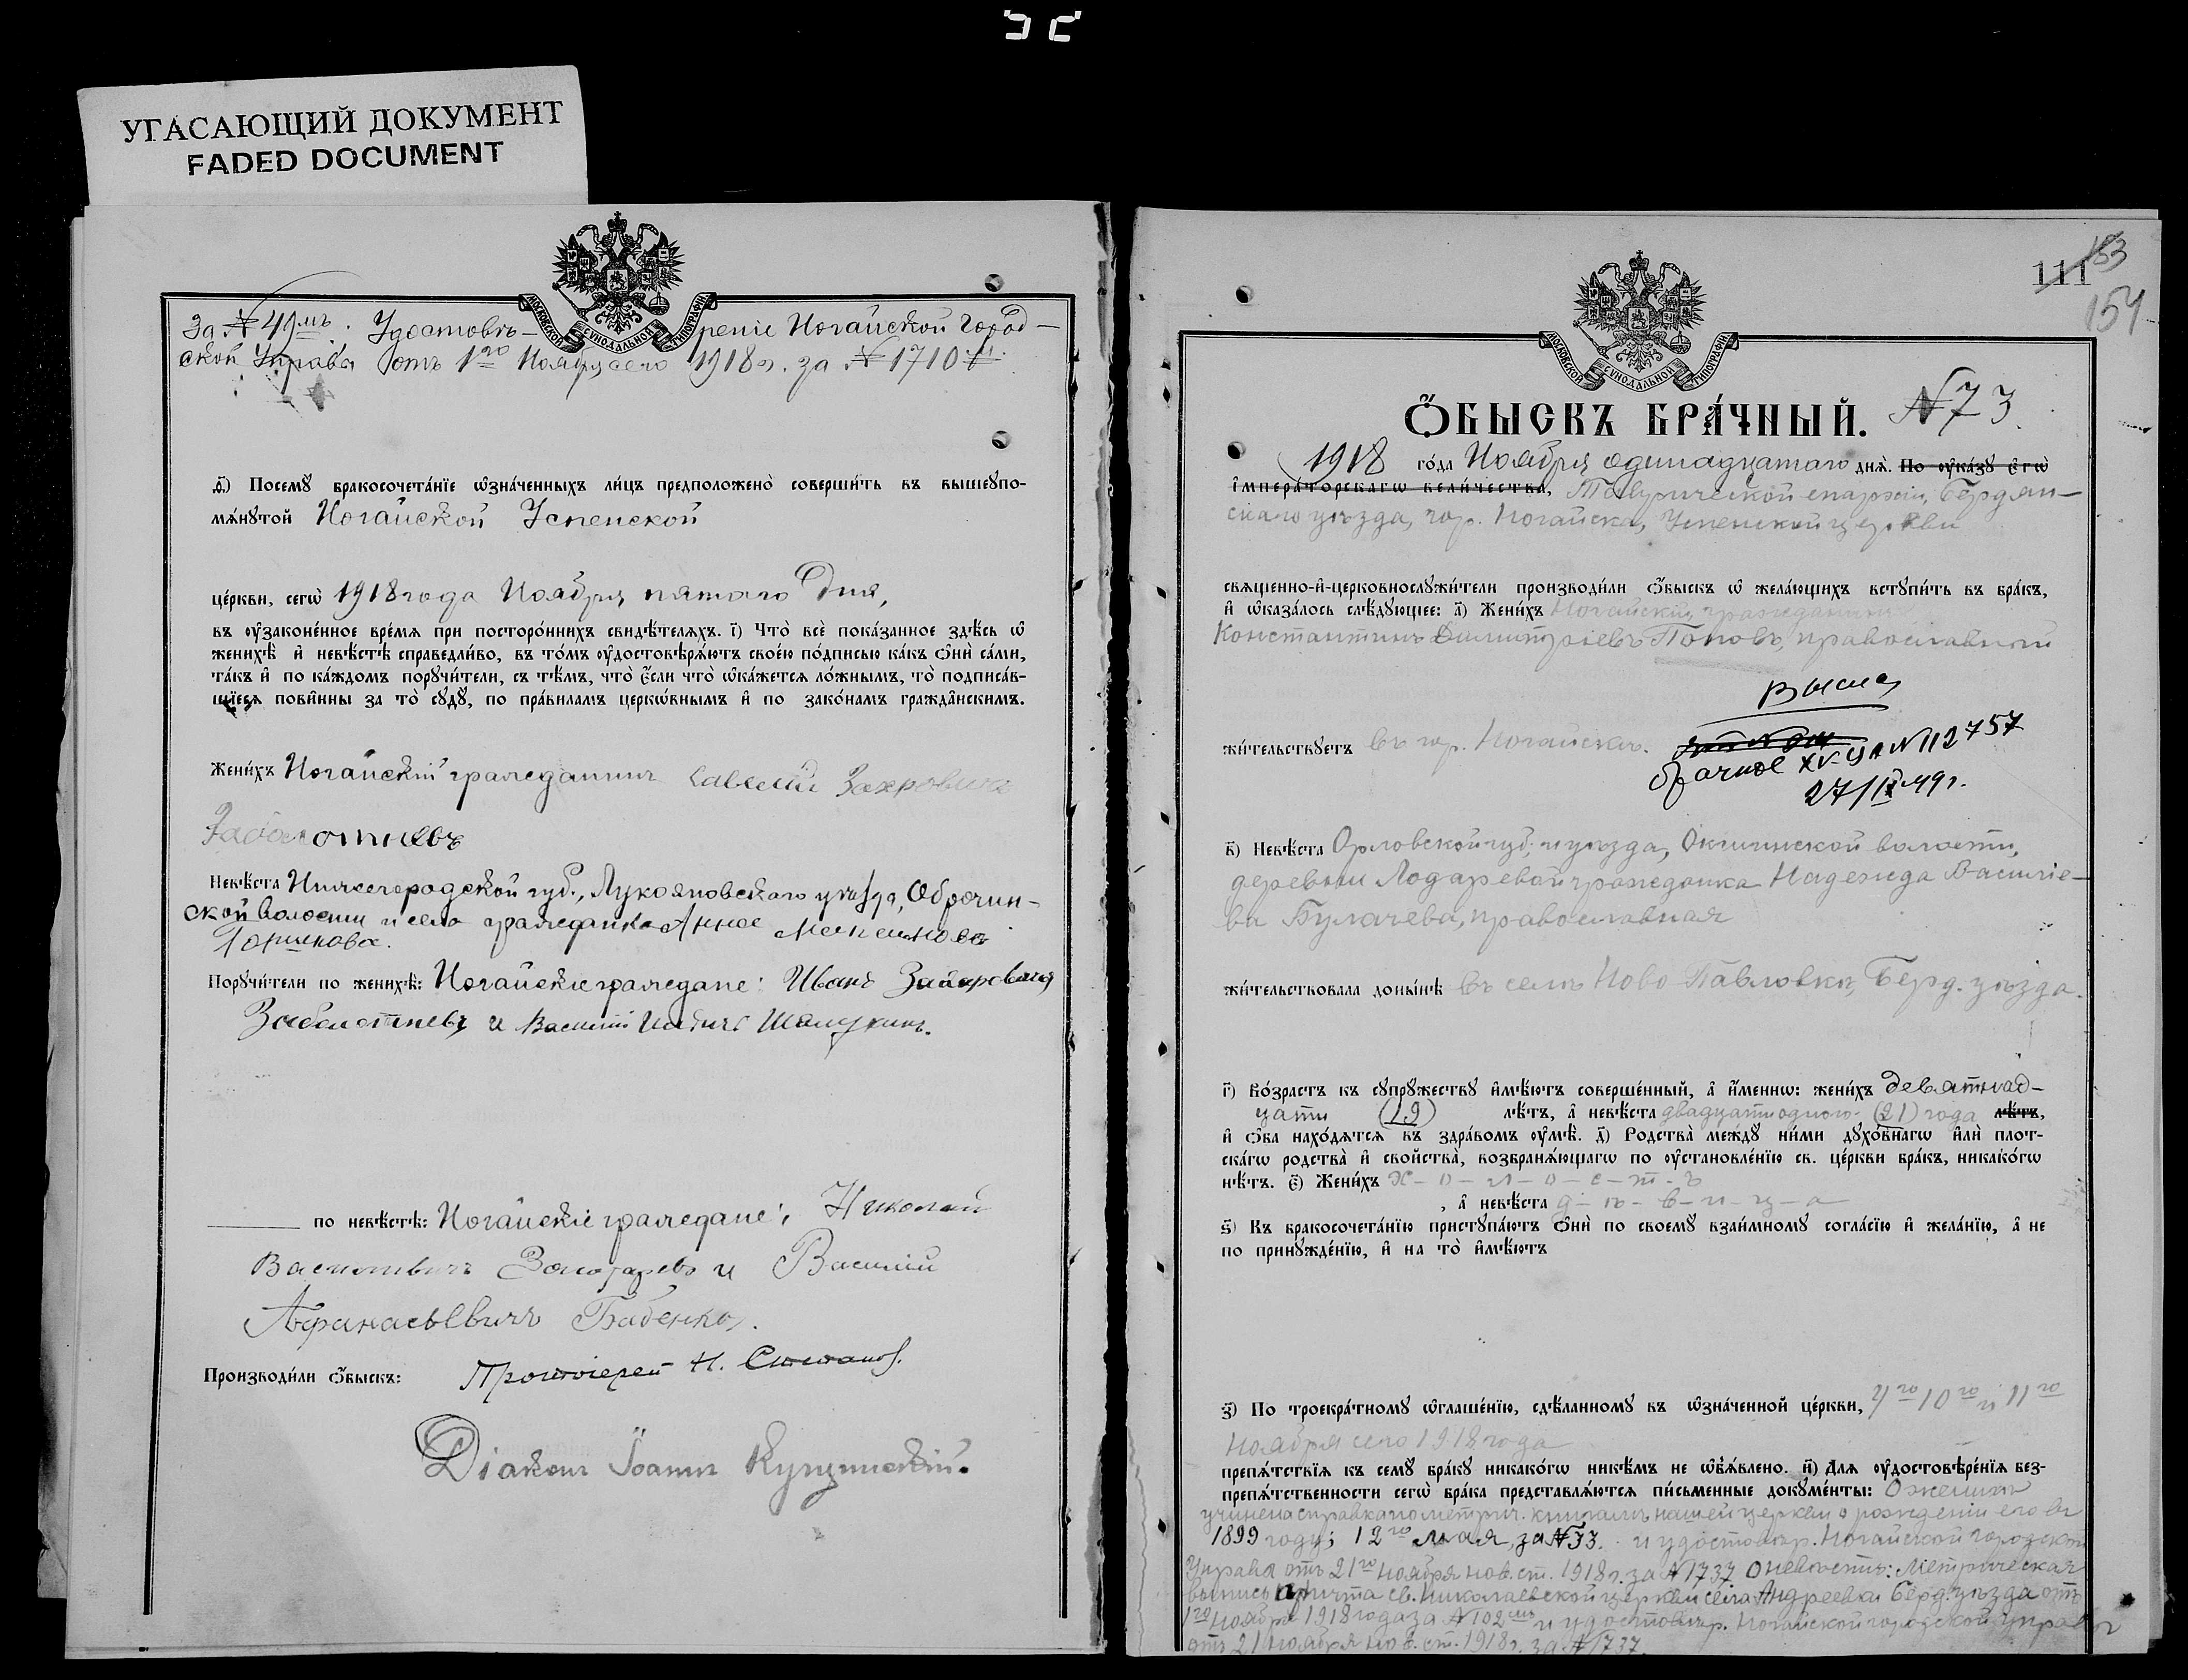 УГАСАЮЩИЙ ДОКУМЕНТ
FADED DOCUMENT
МОСКОВСКОЙ СѴНОДАЛЬНОЙ ТИПОГРАФІИ
За № 49мъ. Удостовѣ- реніе Ногайской Город-
ской Управы отъ 1го Ноября сего 1918 г. за № 1710
ѳ҃) Посемꙋ бракосочета́нїе ѡ҆зна́ченныхъ ли́цъ предположено̀ соверши́ть въ вышеꙋпо-
мѧ́нꙋтой Ногайской Успенской
це́ркви, сегѡ̀ 1918 года Ноября пятаго дня,
въ ᲂу҆зако́ненное вре́мѧ при посторо́ннихъ свидѣ́телѧхъ. і҃) Что̀ всѐ пока́занное здѣ́сь ѡ҆
женихѣ̀ и҆ невѣ́стѣ справедли́во, въ то́мъ ᲂу҆достовѣрѧ́ютъ свое́ю по́дписью ка́къ ѻ҆нѝ са́ми,
та́къ и҆ по ка́ждомъ порꙋчи́тели, съ тѣ́мъ, что̀ є҆́сли что̀ ѡ҆ка́жетсѧ ло́жнымъ, то̀ подписа́в-
шїесѧ пови́нны за то̀ сꙋдꙋ̀, по пра́виламъ церко́внымъ и҆ по зако́намъ гражда́нскимъ.
Жени́хъ Ногайскій гражданинъ Савелій Захровичъ
Заболотневъ
Невѣ́ста Нижегородской губ., Лукояновскаго уѣзда, Оброчин-
ской волости и села гражданка Анна
Горшкова.
Порꙋчи́тели по женихѣ̀: Ногайскіе граждане: Иванъ Захаровичъ
Заболотневъ и Василій Шалукинъ.
по невѣ́стѣ: Ногайскіе граждане: Николай
Васильевичъ Золотаревъ и Василій
Афанасьевичъ Бабенко.
Производи́ли ѻ҆́быскъ: Протоіерей Н. Степанов.
Діаконъ Іоаннъ
111 183
154
МОСКОВСКОЙ СѴНОДАЛЬНОЙ ТИПОГРАФІИ
Ѻ҆́БЫСКЪ БРА́ЧНЫЙ. № 73
1918 го́да Ноября одинадцатаго днѧ̀. По ᲂу҆ка́зꙋ є҆гѡ̀
і҆мпера́торскагѡ вели́чества, Таврической епархіи, Бердян-
скаго уѣзда, гор. Ногайска, Успенской церкви
свѧще́нно-и҆-церковнослꙋжи́тели производи́ли ѻ҆́быскъ ѡ҆ жела́ющихъ встꙋпи́ть въ бра́къ,
и҆ ѡ҆каза́лось слѣ́дꙋющее: а҃) Жени́хъ Ногайскій гражданинъ
Константинъ Димитріевъ Поповъ, православный
жи́тельствꙋетъ въ гор. Ногайскѣ.
№ 112757
27/IX 49 г.
в҃) Невѣ́ста Орловской губ., и уѣзда, волости,
деревни Лодаревой гражданка Надежда Василіе-
ва Булачева, православная
жи́тельствовала доны́нѣ въ селѣ Ново Павловкѣ, Берд. уѣзда.
г҃) Во́зрастъ къ сꙋпрꙋ́жествꙋ и҆мѣ́ютъ соверше́нный, а҆ и҆́меннѡ: жени́хъ девятнад-
цати (19) лѣ́тъ, а҆ невѣ́ста двадцати одного (21) года лѣ́тъ,
и҆ ѻ҆́ба нахо́дѧтсѧ въ здра́вомъ ᲂу҆мѣ̀. д҃) Родства̀ ме́ждꙋ ни́ми дꙋхо́внагѡ и҆лѝ плот-
ска́гѡ родства̀ и҆ сво́йства̀, возбранѧ́ющагѡ по ᲂу҆становле́нїю св. це́ркви бра́къ, никако́гѡ
нѣ́тъ. є҃) Жени́хъ х-о-л-о-с-т-ъ
, а҆ невѣ́ста д-ѣ-в-и-ц-а
ѕ҃) Къ бракосочета́нїю пристꙋпа́ютъ ѻ҆нѝ по своемꙋ̀ взаи́мномꙋ согла́сїю и҆ жела́нїю, а҆ не
по принꙋжде́нїю, и҆ на то̀ и҆мѣ́ютъ
з҃) По троекра́тномꙋ ѡ҆глаше́нїю, сдѣ́ланномꙋ въ ѡ҆зна́ченной це́ркви, 4го 10го и 11го
Ноября сего 1918 года
препѧ́тствїѧ къ семꙋ̀ бра́кꙋ никако́гѡ никѣ́мъ не ѡ҆б̾ѧ́влено. и҃) Длѧ ᲂу҆достовѣре́нїѧ без-
препѧ́тственности сегѡ̀ бра́ка представлѧ́ютсѧ пи́сьменные докꙋме́нты: О женихѣ
учинена справка по метрич. книгамъ нашей церкви о рожденіи его въ
1899 году; 12го мая, за № 33. и удостовѣр. Ногайской городской
Управы отъ 21го Ноября нов. ст. 1918 г. за № 1737 О невѣстѣ: Метрическая
выпись причта св. Николаевской церкви села Андреевки Берд. уѣзда отъ
1го Ноября 1918 года за № 102мъ и удостовѣр. Ногайской городской управы
отъ 21 Ноября нов. ст. 1918 г. за № 1737.